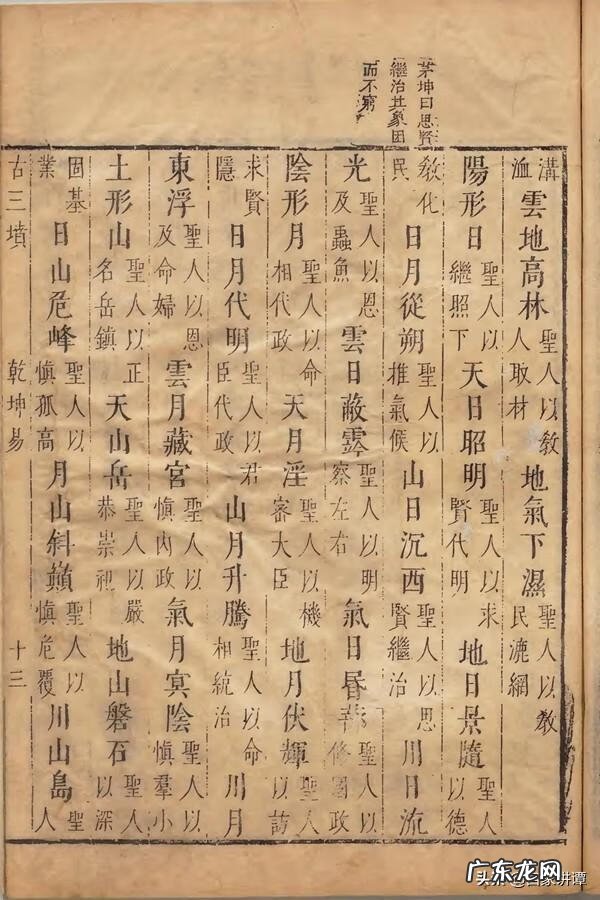 茅坤曰思賢
繼治其象因
而不窮
溝洫雲地高林聖人以教人取材地氣下濕聖人以教民漁網
陽形日聖人以繼照下天日昭明聖人以求賢代明地日景隨聖人以德
教化民日月從朔聖人以推氣候山日沉西聖人以思賢繼治川日流
光聖人以恩及蟲魚雲日蔽雺聖人以明察左右氣日昏聖人以修國政
陰形月聖人以命相代政天月淫聖人以機審大臣地月伏輝聖人以訪
求賢隱日月代明聖人以君臣代政山月升騰聖人以命相統治川月
東浮聖人以恩及命婦雲月藏宮聖人以慎內政氣月冥陰聖人以慎羣小
土形山聖人以正名岳鎮天山岳聖人以嚴恭崇祀地山磐石聖人以深
固基業日山危峰聖人以慎孤高月山斜巔聖人以慎危覆川山島聖人
古三墳 乾坤易 十三
广东龙网